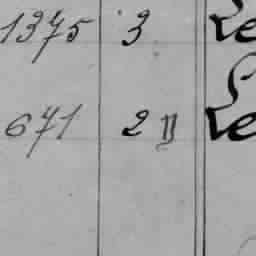 1375 3 Le
671 2 Le